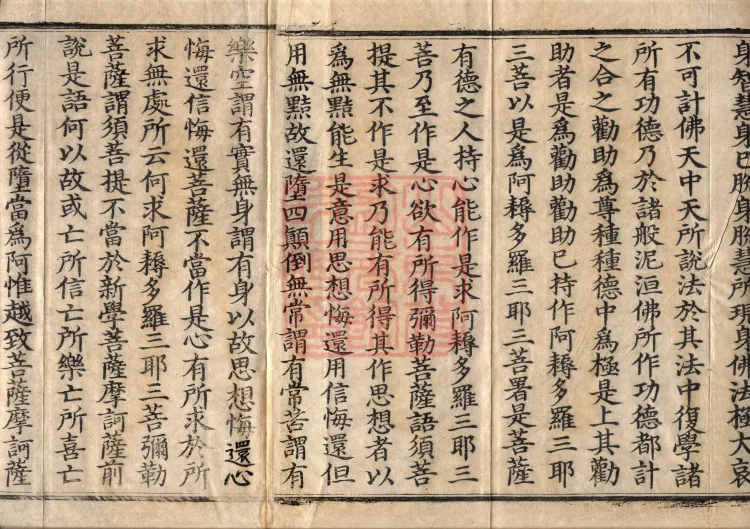 身智慧身已脫身脫慧所現身佛法極大哀
不可計佛天中天所說法於其法中復學諸
所有功德乃於諸般泥洹佛所作功德都計
之合之勸助為尊種種德中為極是上其勸
助者是為勸助勸助已持作阿耨多羅三耶
三菩以是為阿耨多羅三耶三菩署是菩薩
有德之人持心能作是求阿耨多羅三耶三
菩乃至作是心欲有所得彌勒菩薩語須菩
提其不作是求乃能有所得其作思想者以
為無黠能生是意用思想悔還用信悔還但
用無黠故還墮四顛倒無常謂有常苦謂有
樂空謂有實無身謂有身以故思想悔還心
悔還信悔還菩薩不當作是心有所求於所
求無處所云何求阿耨多羅三耶三菩彌勒
菩薩謂須菩提不當於新學菩薩摩訶薩前
說是語何以故或亡所信亡所樂亡所喜亡
所行便是從墮當為阿惟越致菩薩摩訶薩